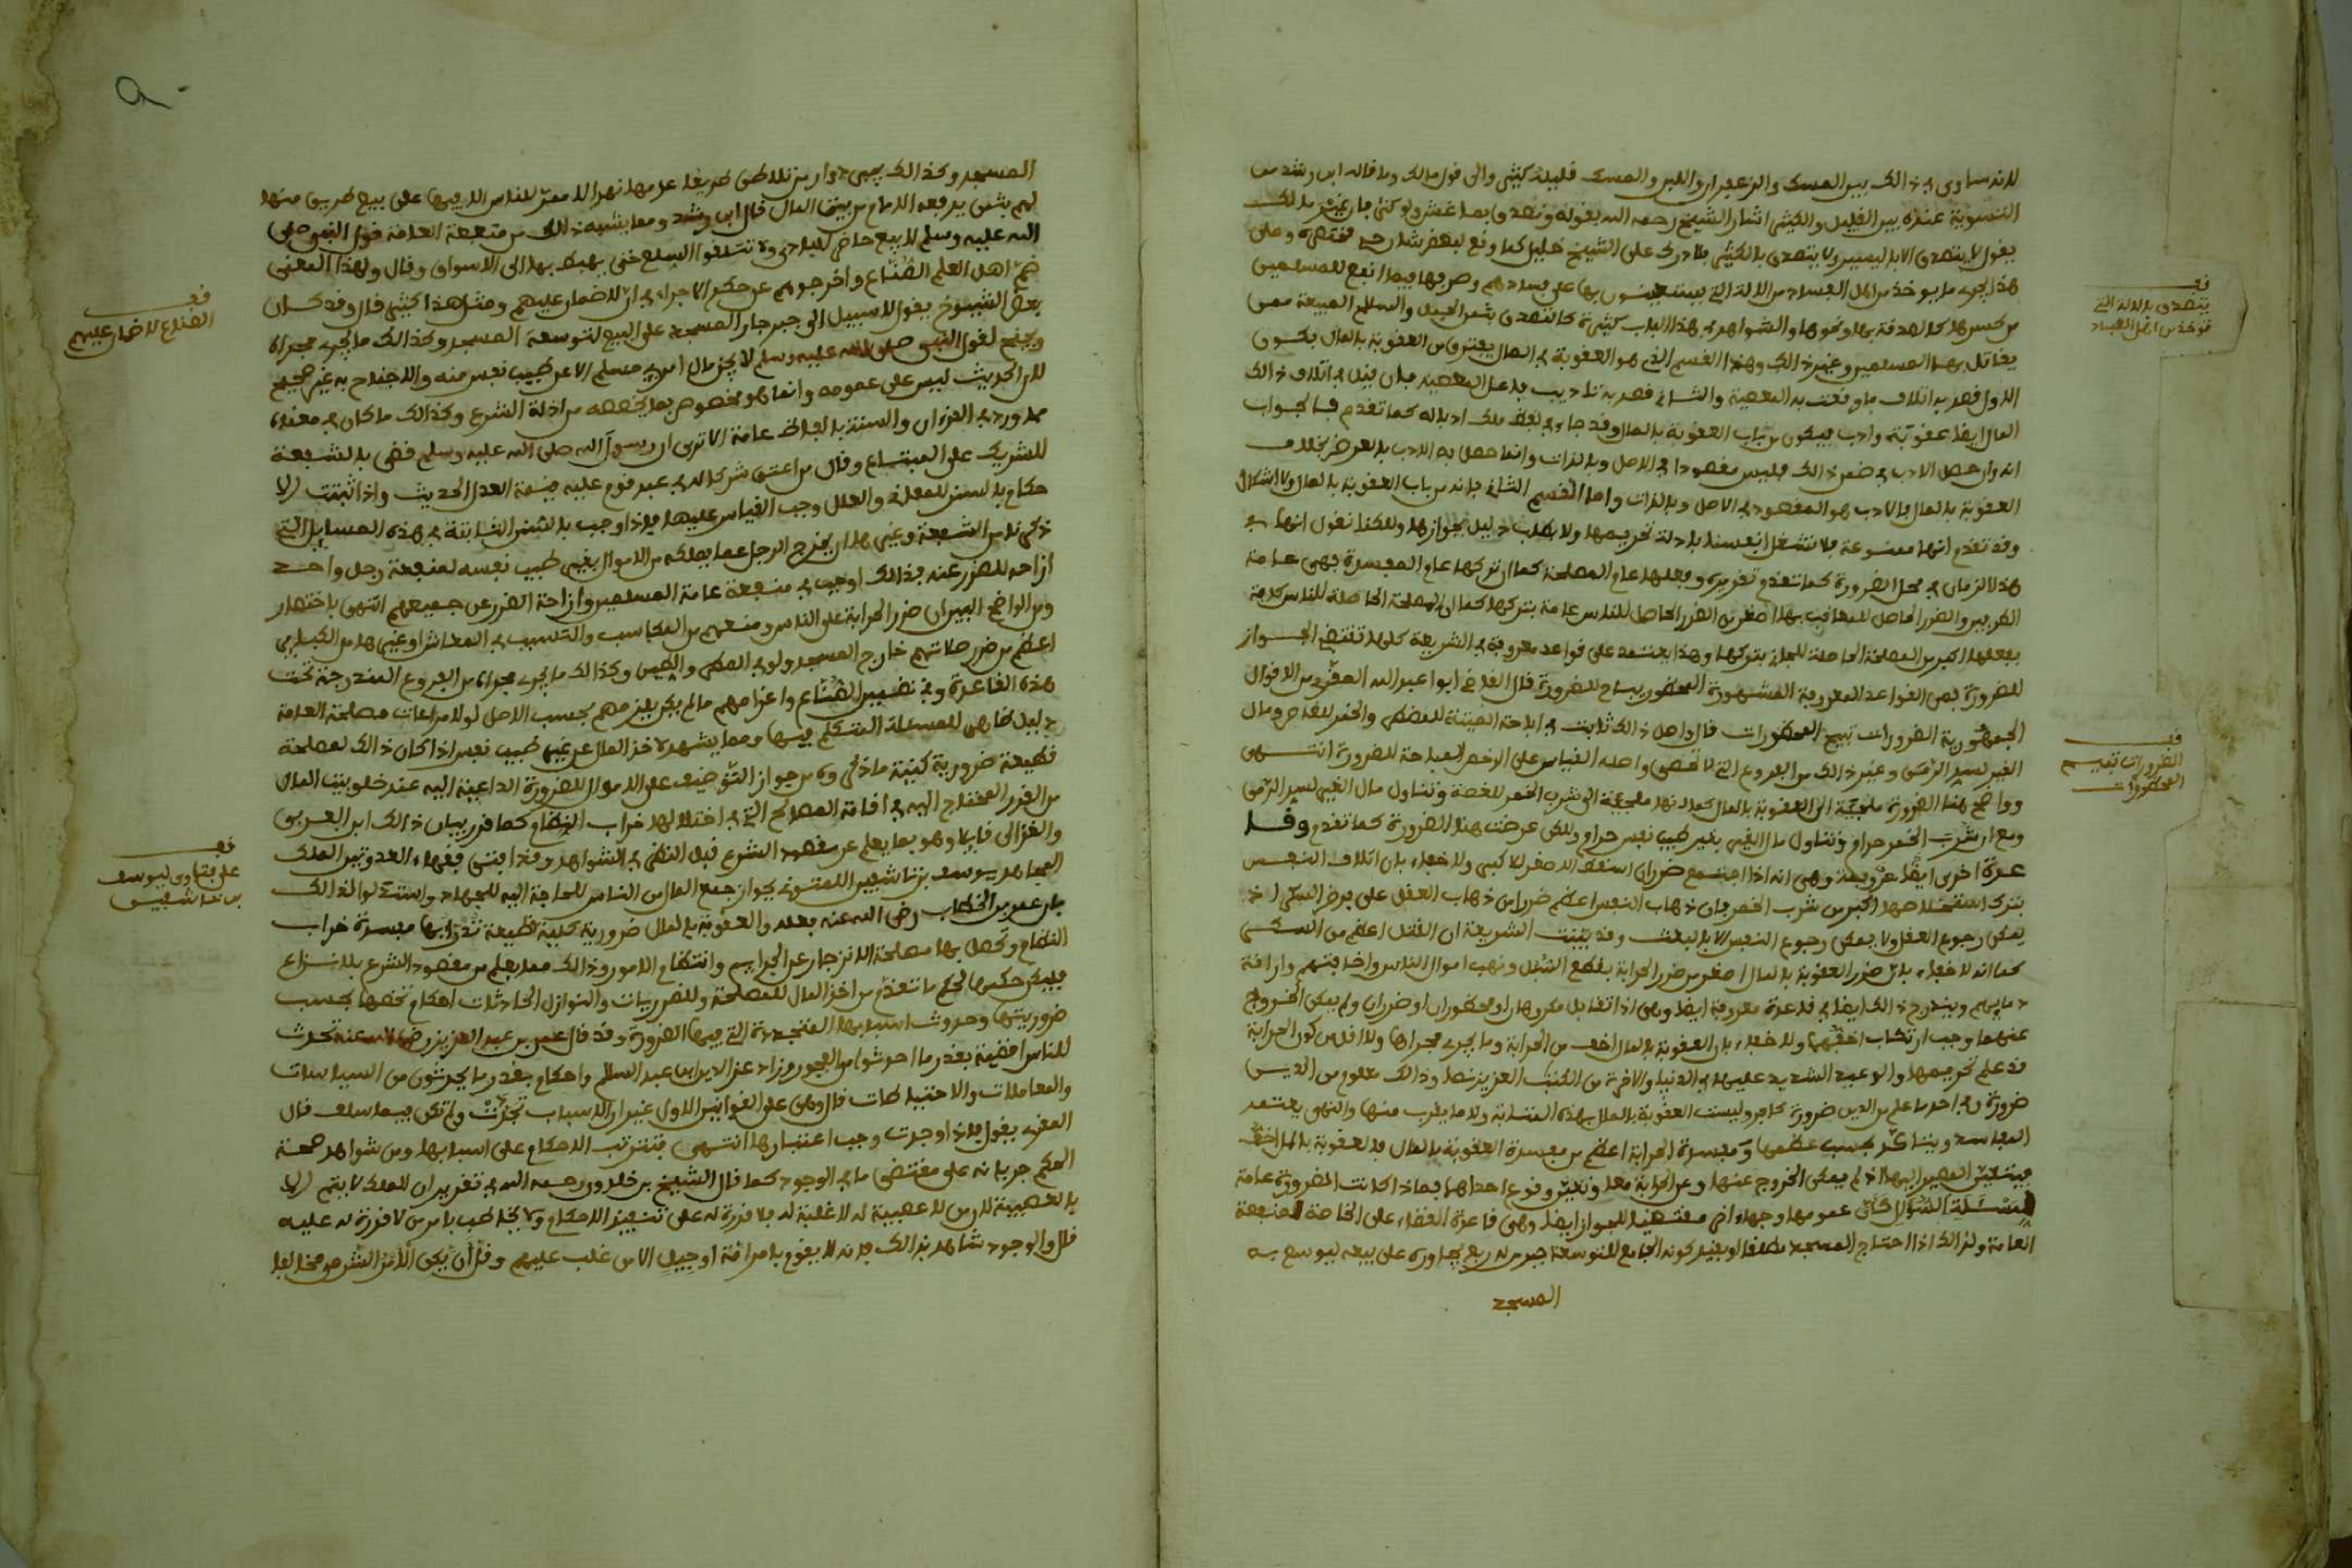 لانه ساوى في ذلك بين المسك والزعفران واللبن والمسك قليله كثير والى قول مالك وما قاله ابن رشد من
التسوية عنده بين القليل والكثير اشار الشيخ رحمه الله بقوله وتصدق بما غش ولو كثر
يقول لا يتصدق الا باليسير ولا يتصدق بالكثير على الشيخ خليل كما وقع لبعض شار وعلى
هذا يجرى ما يوخذ من اهل الفساد من الالة التي يستعينون بها على فسادهم وصرفها فيما انفع للمسلمين
من كسرها كالصدقة بها ونحوها والشواهد في هذا الباب كثيرة كالتصدق بثمن الخيل والسلاح المبيعة ممن
يقاتل بها المسلمين وغير ذلك وهذا القسم الذي هو العقوبة في المال يفترق من العقوبة بالمال بكون
الاول قصد به اتلاف ما وقعت به المعصية والثاني قصد به تاديب فاعل المعصية فان قيل في اتلاف ذلك
المال ايضا عقوبة وادب فيكون من باب العقوبة بالمال وقد جاء في بعض ذلك ادبا له كما تقدم فالجواب
انه وان حصل الادب في ضمن ذلك فليس مقصودا في الاصل وبالذات وانما حصل به الادب بالعرض بخلاف
العقوبة بالمال فالادب هو المقصود في الاصل وبالذات واما القسم الثاني فانه من باب العقوبة بالمال ولا اشكال
وقد تقدم انها منسوخة فلا نشغل انفسنا بادلة تحريمها ولا بطلب دليل جوازها ولكنا نقول انها في
هذا الزمان في محل الضرورة كما تقدم تقريره وفعلها عام المصلحة كما ان تركها عام المفسدة فهي عامة
الطرفين والضرر الحاصل للمعاقب بها اصغر من الضرر الحاصل للناس عامة بتركها كما ان المصلحة الحاصلة للناس كافة
بفعلها اكبر من المصلحة الحاصلة للجاني بتركها وهذا يعتمد على قواعد معروفة في الشريعة كلها تقتضي الجواز
للضرورة فمن القواعد المعروفة المشهورة المحظور يباح للضرورة قال القاضي ابوا عبد الله المقري من الاقوال
الجمهورية الضرورات تبيح المحظورات قال واصل ذلك ثابت في اباحة الميتة للمضطر والخمر للغاص ومال
الغير لسد الرمق وغير ذلك من الفروع التي لا تحصى واصله القياس على الرخص المباحة للضرورة انتهى
وواضح هنا الضرورة ملجئة الى العقوبة بالمال كما انها ملجئة الى شرب الخمر للغصة وتناول مال الغير لسد الرمق
ومع ان شرب الخمر حرام وتناول مال الغير بغير طيب نفس حرام ولكن عرضت هنا الضرورة كما تقدم وقا
عدة اخرى ايضا معروفة وهي انه اذا اجتمع ضرران اسقط الاصغر للاكبر ولا خفاء بان اتلاف النفس
بترك استعمالها اكبر من شرب الخمر فان ذهاب النفس اعظم ضررا من ذهاب العقل على فرض السكر اذ
يمكن رجوع العقل ولا يمكن رجوع النفس الا بالبعث وقد بينت الشريعة ان القتل اعظم من السكر
كما انه لا خفاء بان ضرر العقوبة بالمال اصغر من ضرر الحرابة بقطع السبل ونهب اموال الناس واخافتهم واراقة
دمايهم ويندرج ذلك ايضا في قاعدة معروفة ايضا وهي اذا تقابل مكروهان او محظوران او ضرران ولم يمكن الخروج
عنهما وجب ارتكاب اخفهما ولا خفاء بان العقوبة بالمال اخف من الحرابة وما يجرى مجراها ولا اقل من كون الحرابة
قد علم تحريمها والوعيد الشديد عليها في الدنيا والاخرة من الكتب العزيز نصا وذلك معلوم من الدين
ضرورة وجاحد ما علم من الدين ضرورة كافر وليست العقوبة بالمال بهذه المثابة ولا ما يقرب منها والنهي يعتمد
المفاسد ويتاكد بحسب عظمها ومفسدة الحرابة اعظم من مفسدة العقوبة بالمال فالعقوبة بالمال اخف
فيتعين المصير اليها اذ لم يمكن الخروج عنها وعن الحرابة معا وتعين وقوع احداهما فما ذا كانت الضرورة عامة
لمسئلة السؤال كان عمومها وجها اخر مقتضيا للجواز ايضا وهي قاعدة القضاء على الخاصة لمنفعة
العامة ولذلك اذا احتاج المسجد مطلقا او بقيد كونه الجامع للتوسعة جبر من له ربع يجاوره على بيعه ليوسع به
المسجد
فف
يتصدق بالالة التي
توخذ من اهل الفساد
فف
الضرورات تبيح
المحظورات
المسجد وكذلك يجبر ذوا ارض تلاصق طريقا هدمها نهر لا ممر للناس الا فيها على بيع طريق منها
لهم بثمن يدفعه الامام من بيت المال قال ابن رشد ومما يشبه ذلك من منفعة العامة قول النبي صلى
الله عليه وسلم لا يبيع حاضر لباد ولا تتلقوا السلع حتى يهبط بها الى الاسواق وقال ولهذا المعنى
ضمن اهل العلم الصناع واخرجوهم عن حكم الاجراء في ان لا ضمان عليهم ومثل هذا كثير قال وقد كان
بعض الشيوخ يقول لا سبيل الى جبر جار المسجد على البيع لتوسعة المسجد وكذلك ما يجري مجراه
ويحتج لقول النبي صلى الله عليه وسلم لا يحل مال امرئ مسلم الا عن طيب نفس منه والاحتجاج به غير صحيح
لان الحديث ليس على عمومه وانما هو مخصوص بما يخصصه من ادلة الشرع وكذلك ما كان في معناه
مما ورد في القرءان والسنة بالفاظ عامة الا ترى ان رسول الله صلى الله عليه وسلم قضى بالشفعة
للشريك على المبتاع وقال من اعتق شركا له في عبد قوم عليه قيمة العدل الحديث واذا ثبتت الا
حكام بالسنن للمعاني والعلل وجب القياس عليها فاذا وجب بالسنن الثابتة في هذه المسايل التي
ذكرناها من الشفعة وغيرها ان يخرج الرجل عما يملكه من الاموال بغير طيب نفسه لمنفعة رجل واحد
ازاحة للضرر عنه فذلك اوجب في منفعة عامة المسلمين وازاحة الضرر عن جميعهم انتهى باختصار
ومن الواضح البين ان ضرر الحرابة على الناس ومنعهم من المكاسب والتسبب في المعاش او غيرها من الكبائر
اعظم من ضرر صلاتهم خارج المسجد ولو في المطر والطين وكذلك ما يجري مجراه من الفروع المندرجة تحت
هذه القاعدة وفي تضمين الصناع واغرامهم مالم يكن يلزمهم بحسب الاصل لولا مراعات مصلحة العامة
دليل ظاهر للمسئلة المتكلم فيها ومما يشهد لاخذ المال عن غير طيب نفس اذا كان ذلك لمصلحة
قطعية ضرورية كلية ما ذكروه من جواز التوظيف على الاموال للضرورة الداعية اليه عند خلو بيت المال
من القدر المحتاج اليه في اقامة المصالح التي في اختلالها خراب النظام كما قرر بيان ذلك ابن العربي
والغزالي قايلا وهو بما يعلم عن مقصود الشرع قبل النظر في الشواهد وقد افتى فقهاء العدوتين الملك
المجاهد يوسف بن تاشفين اللمتوني بجواز جمع المال من الناس للحاجة اليه للجهاد واستدلوا لذلك
بان عمر بن الخطاب رضي الله عنه فعله والعقوبة بالمال ضرورية كلية قطعية تدرا بها مفسدة خراب
النظام وتحصل بها مصلحة الانزجار عن الجرايم وانتظام الامور وذلك مما يعلم من مقصود الشرع بلا نزاع
فليكن حكمها حكم ما تقدم من اخذ المال للمصلحة وللضروريات والنوازل الحادثات احكام تخصها بحسب
ضروريتها وحدوث اسبابها المتجددة التي فيها الضرورة وقد قال عمر بن عبد العزيز رضي الله عنه تحدث
للناس اقضية بقدر ما احدثوا من الفجور وزاد عز الدين ابن عبد السلام واحكام بقدر ما يحدثون من السياسات
والمعاملات والاحتياطات قال وهي على القوانين الاول غير ان الاسباب تجددت ولم تكن فيما سلف قال
المقري يقول فاذا وجدت وجب اعتبارها انتهى فتترتب الاحكام على اسبابها ومن شواهد صحة
الحكم جريانه على مقتضى ما في الوجود كما قال الشيخ بن خلدون رحمه الله في تقرير ان الملك لا يتم الا
بالعصبية لان من لا عصبية له لا غلبة له فلا قدرة له على تنفيذ الاحكام ولا يخاطب بامر من لا قدرة له عليه
قال والوجود شاهد بذلك فانه لا يقوم بامر امة او جيل الا من غلب عليهم وقل ان يكون الامر الشرعي مخالفا
فف
الصناع لا ضمان عليهم
فف
على فتاوى ليوسف
بن تاشفين
٩٠